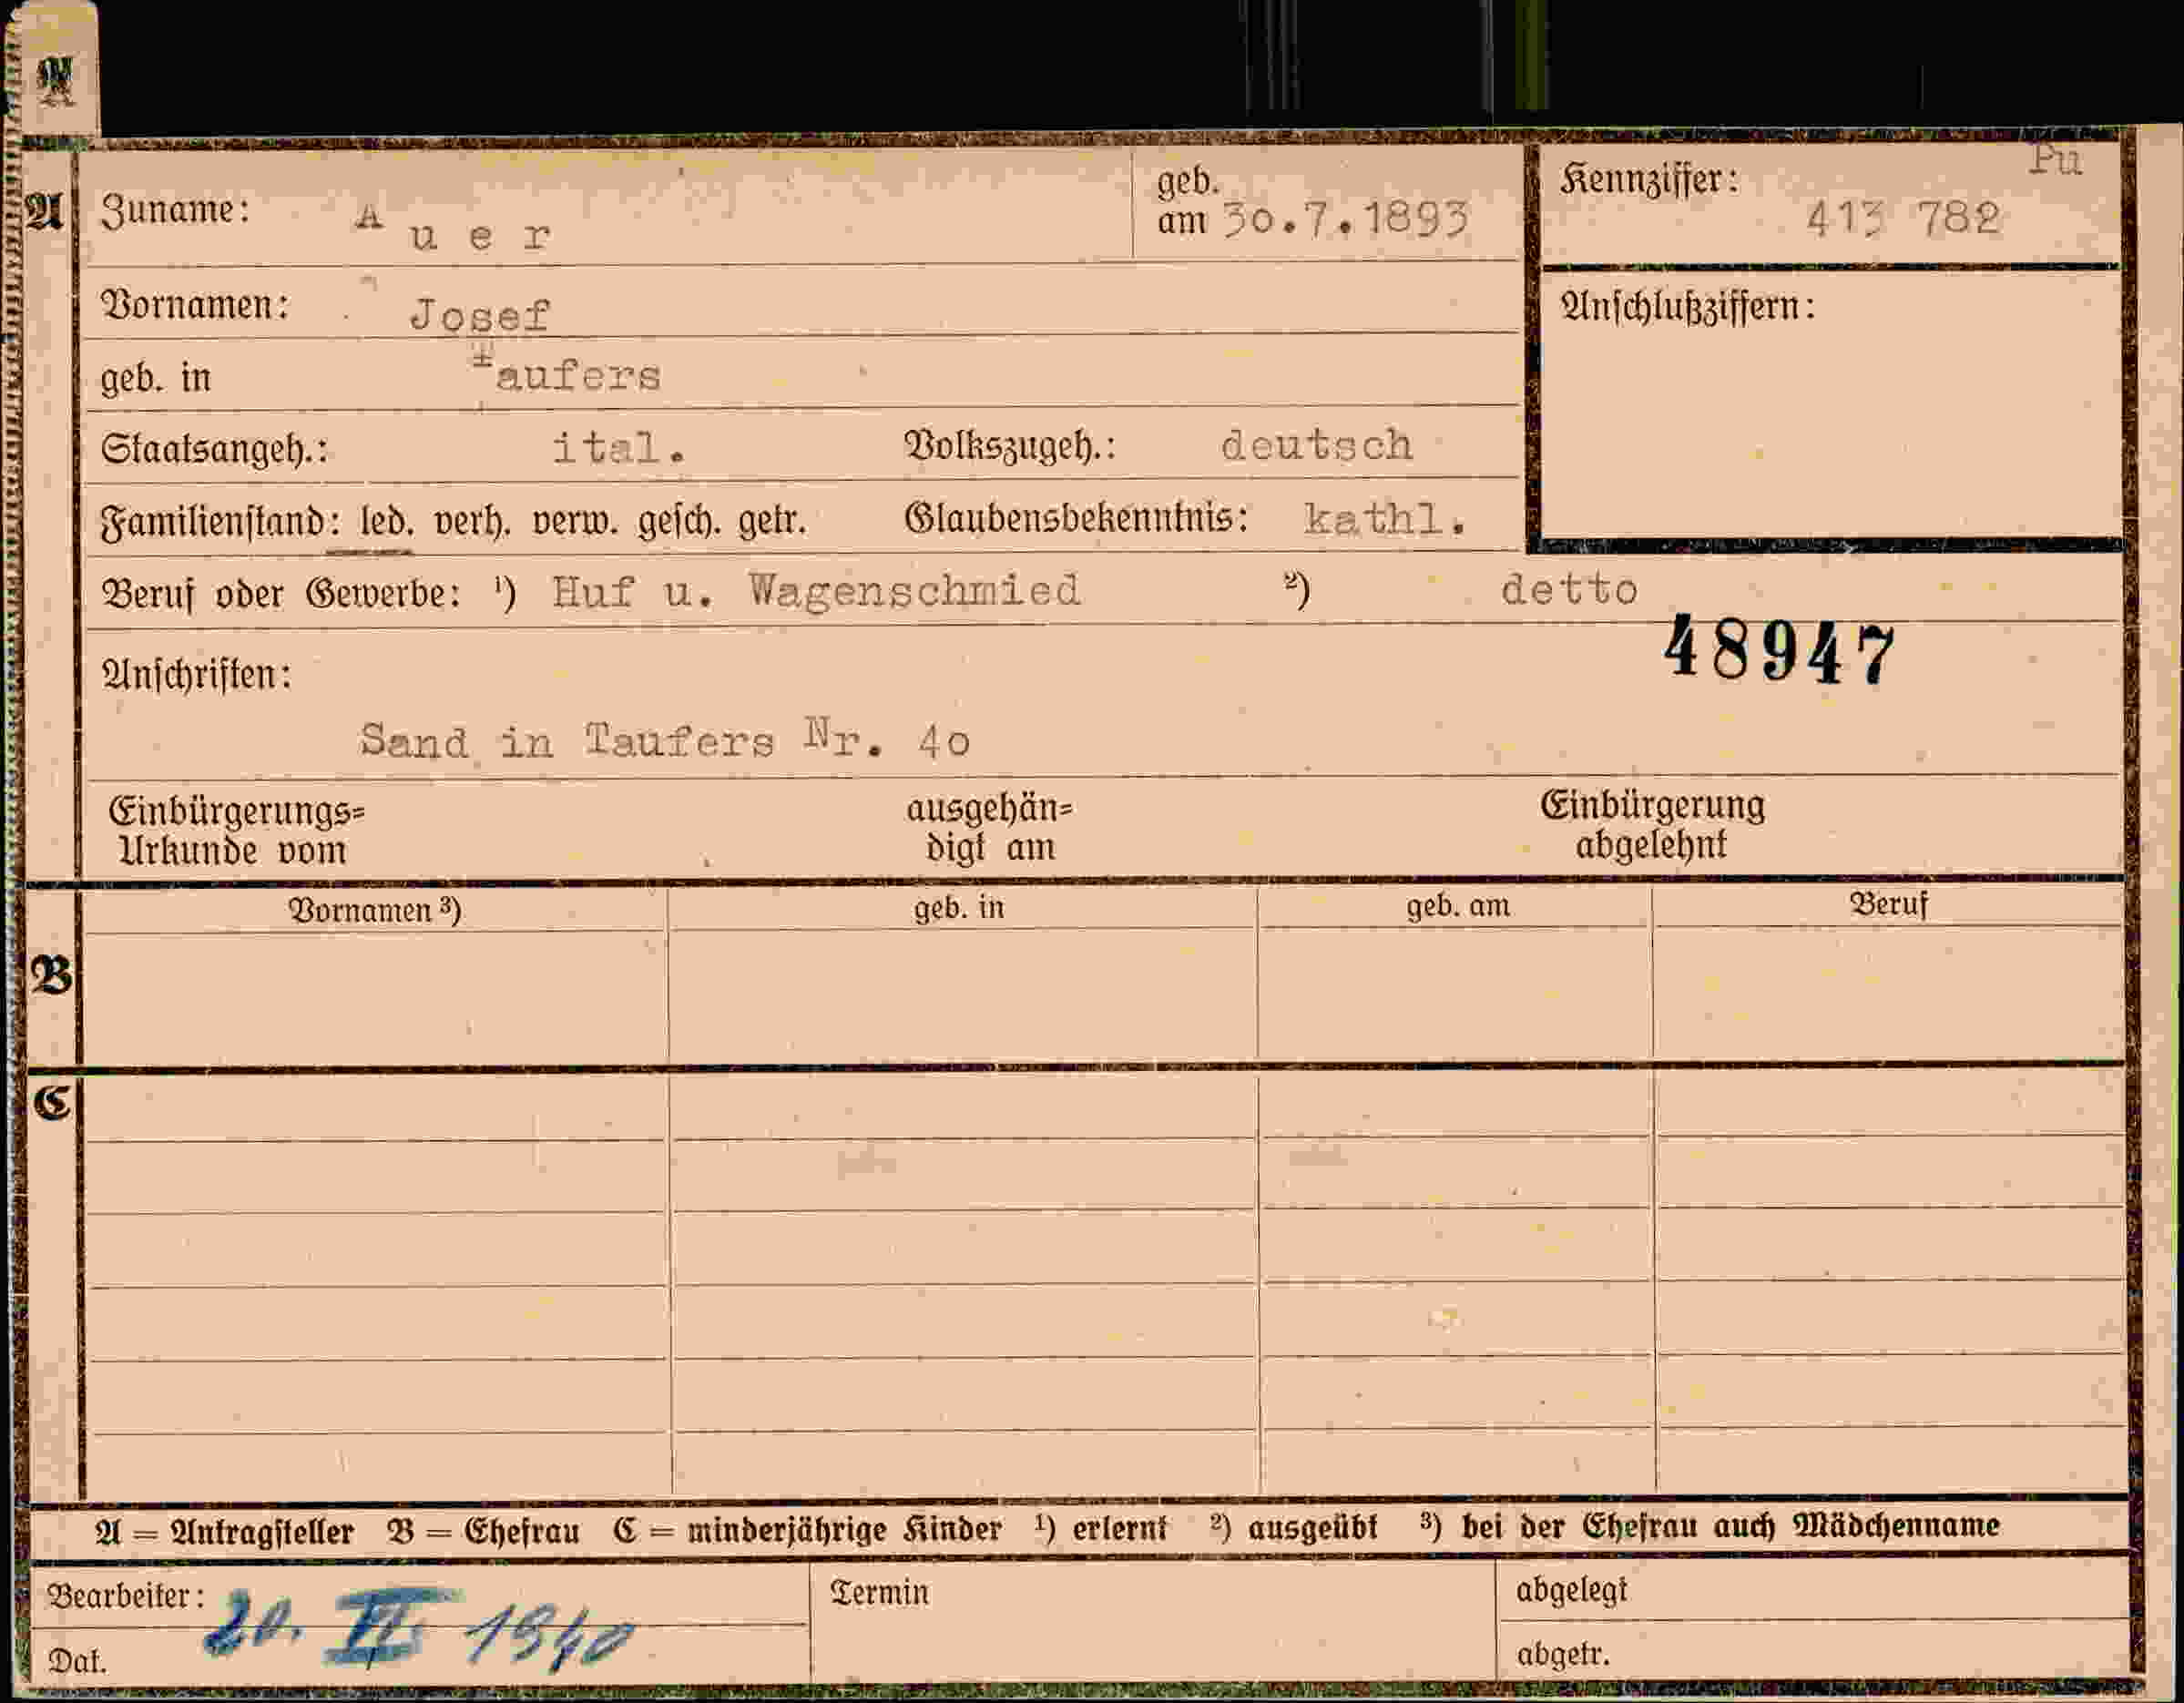 A
A Zuname: Auer geb. am 30.7.1893 Kennziffer: Pu 413 782
Vornamen: Josef Anschlußziffern:
geb. in Taufers
Staatsangeh.: ital. Volkszugeh.: deutsch
Familienstand: led. verh. verw. gesch. getr. Glaubensbekenntnis: kathl.
Beruf oder Gewerbe: ¹) Huf u. Wagenschmied ²) detto
48947
Anschriften:
Sand in Taufers Nr. 40
Einbürgerungs= ausgehän= Einbürgerung
Urkunde vom digt am abgelehnt
Vornamen ³) geb. in geb. am Beruf
B
C
A = Antragsteller B = Ehefrau C = minderjährige Kinder ¹) erlernt ²) ausgeübt ³) bei der Ehefrau auch Mädchenname
Bearbeiter: Termin abgelegt
20. 1940
Dat. abgetr.